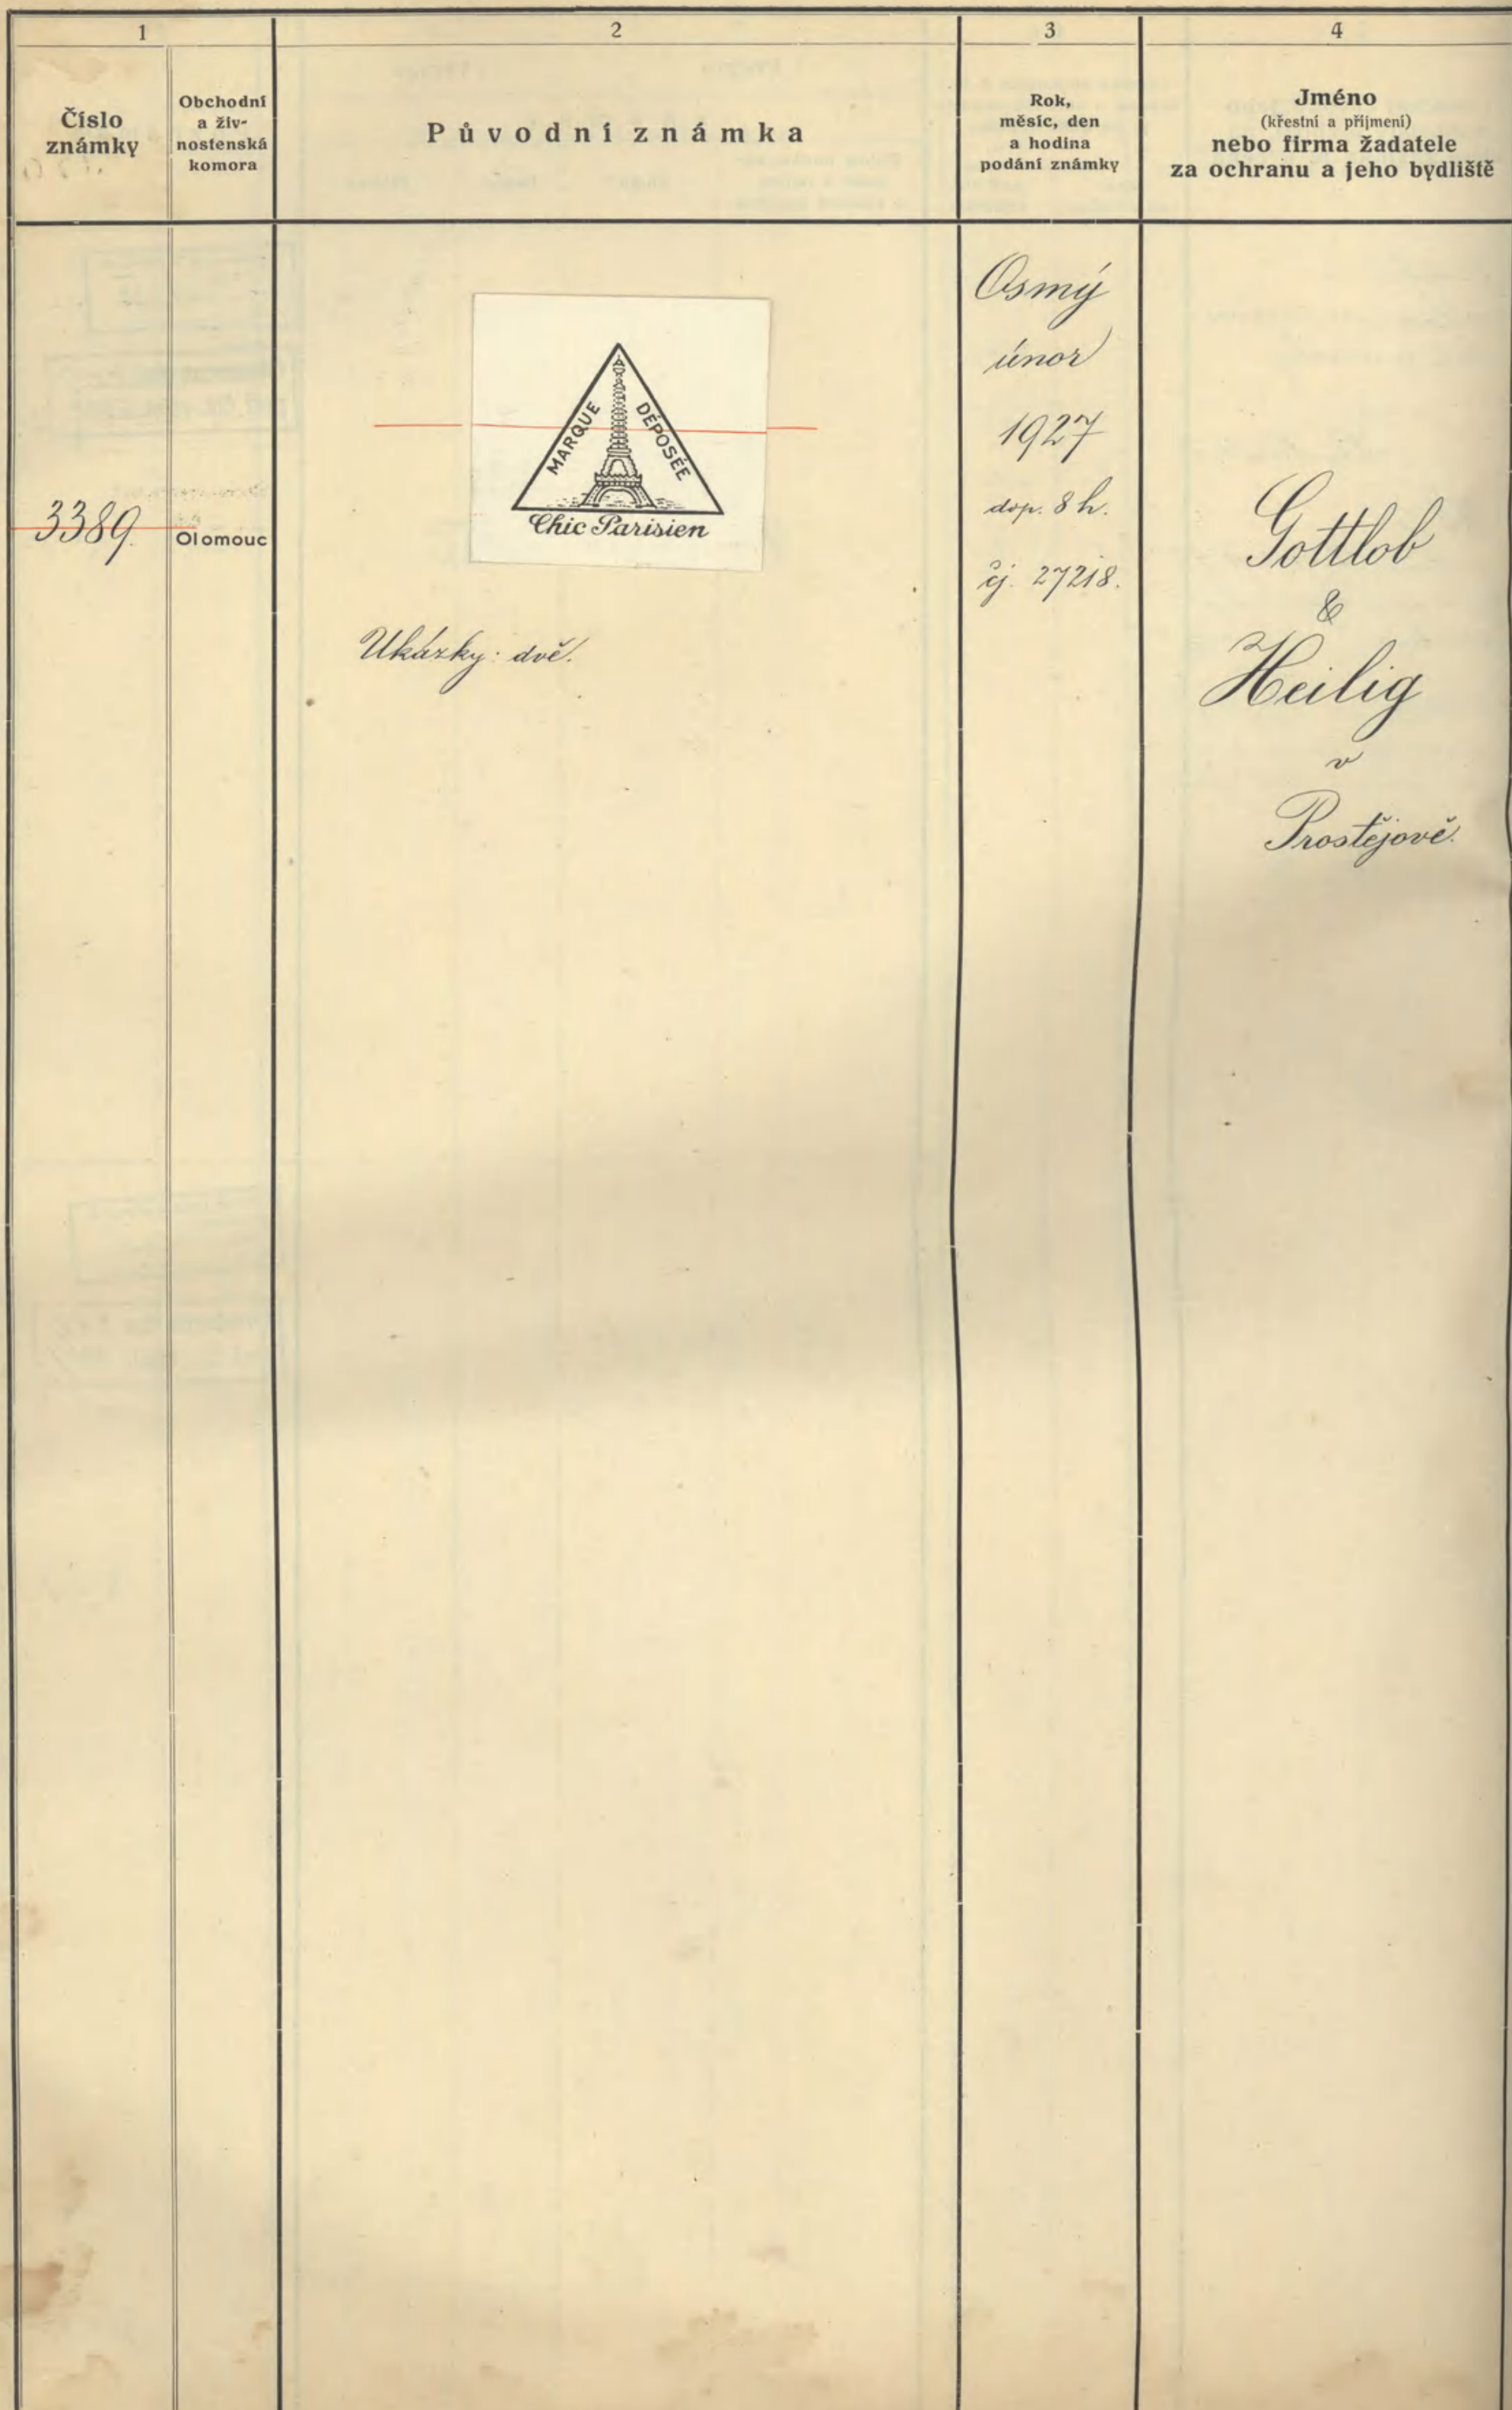 1
2
3
4
Číslo
známky
Obchodní
a živ-
nostenská
komora
Původní známka
Rok,
měsíc, den
a hodina
podání známky
Jméno
(křestní a příjmení)
nebo firma žadatele
za ochranu a jeho bydliště
3389.
Olomouc
MARQUE
DÉPOSÉE
Chic Parisien
Ukázky: dvě.
Osmý
únor
1927
dop. 8 h.
čj. 27218.
Gottlob
&
Heilig
v
Prostějově.